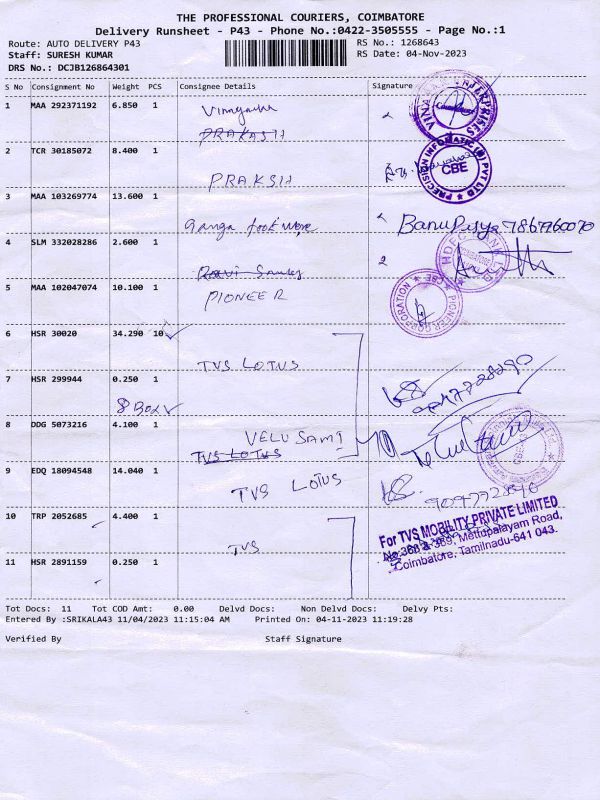 THE PROFESSIONAL COURIERS, COIMBATORE
Delivery Runsheet - P43 - Phone No.:0422-3505555 - Page No.:1
Route: AUTO DELIVERY P43
RS No.: 1268643
Staff: SURESH KUMAR
RS Date: 04-Nov-2023
DRS No.: DCJB126864301
S No Consignment No Weight PCS Consignee Details Signature
1 MAA 292371192 6.850 1
PRAKASH
2 TCR 30185072 8.400 1
PRAKSH
PRECISION INFOMATIC (M) PVT LTD
CBE
3 MAA 103269774 13.600 1
Ganga foot
Banupriya 7867960070
4 SLM 332028286 2.600 1
HDFC BANK LTD
5 MAA 102047074 10.100 1
PIONEER
PIONEER CORPORATION
CBE
6 HSR 30020 34.290 10
TVS LOTUS
7 HSR 299944 0.250 1
8 BOX
8 DDG 5073216 4.100 1
VELUSAMI
TVS LOTUS
9 EDQ 18094548 14.040 1
TVS LOTUS
10 TRP 2052685 4.400 1
TVS
For TVS MOBILITY PRIVATE LIMITED
No.388 & 389, Mettupalayam Road,
Coimbatore, Tamilnadu-641 043.
11 HSR 2891159 0.250 1
Tot Docs: 11 Tot COD Amt: 0.00 Delvd Docs: Non Delvd Docs: Delvy Pts:
Entered By :SRIKALA43 11/04/2023 11:15:04 AM Printed On: 04-11-2023 11:19:28
Verified By Staff Signature